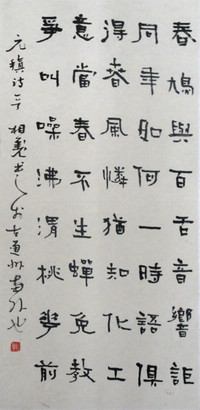 春鳩與百舌音響詎
同年如何一時語俱
得春風憐猶知化工
意當春不生蟬免教
爭叫噪沸渭桃華前
元稹詩一首